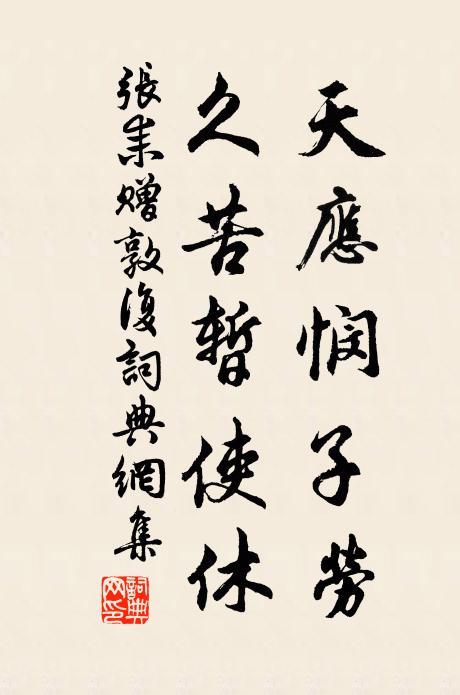 天應憫子勞
久苦暫使休
張耒贈敦復詞典網集
詞典網印